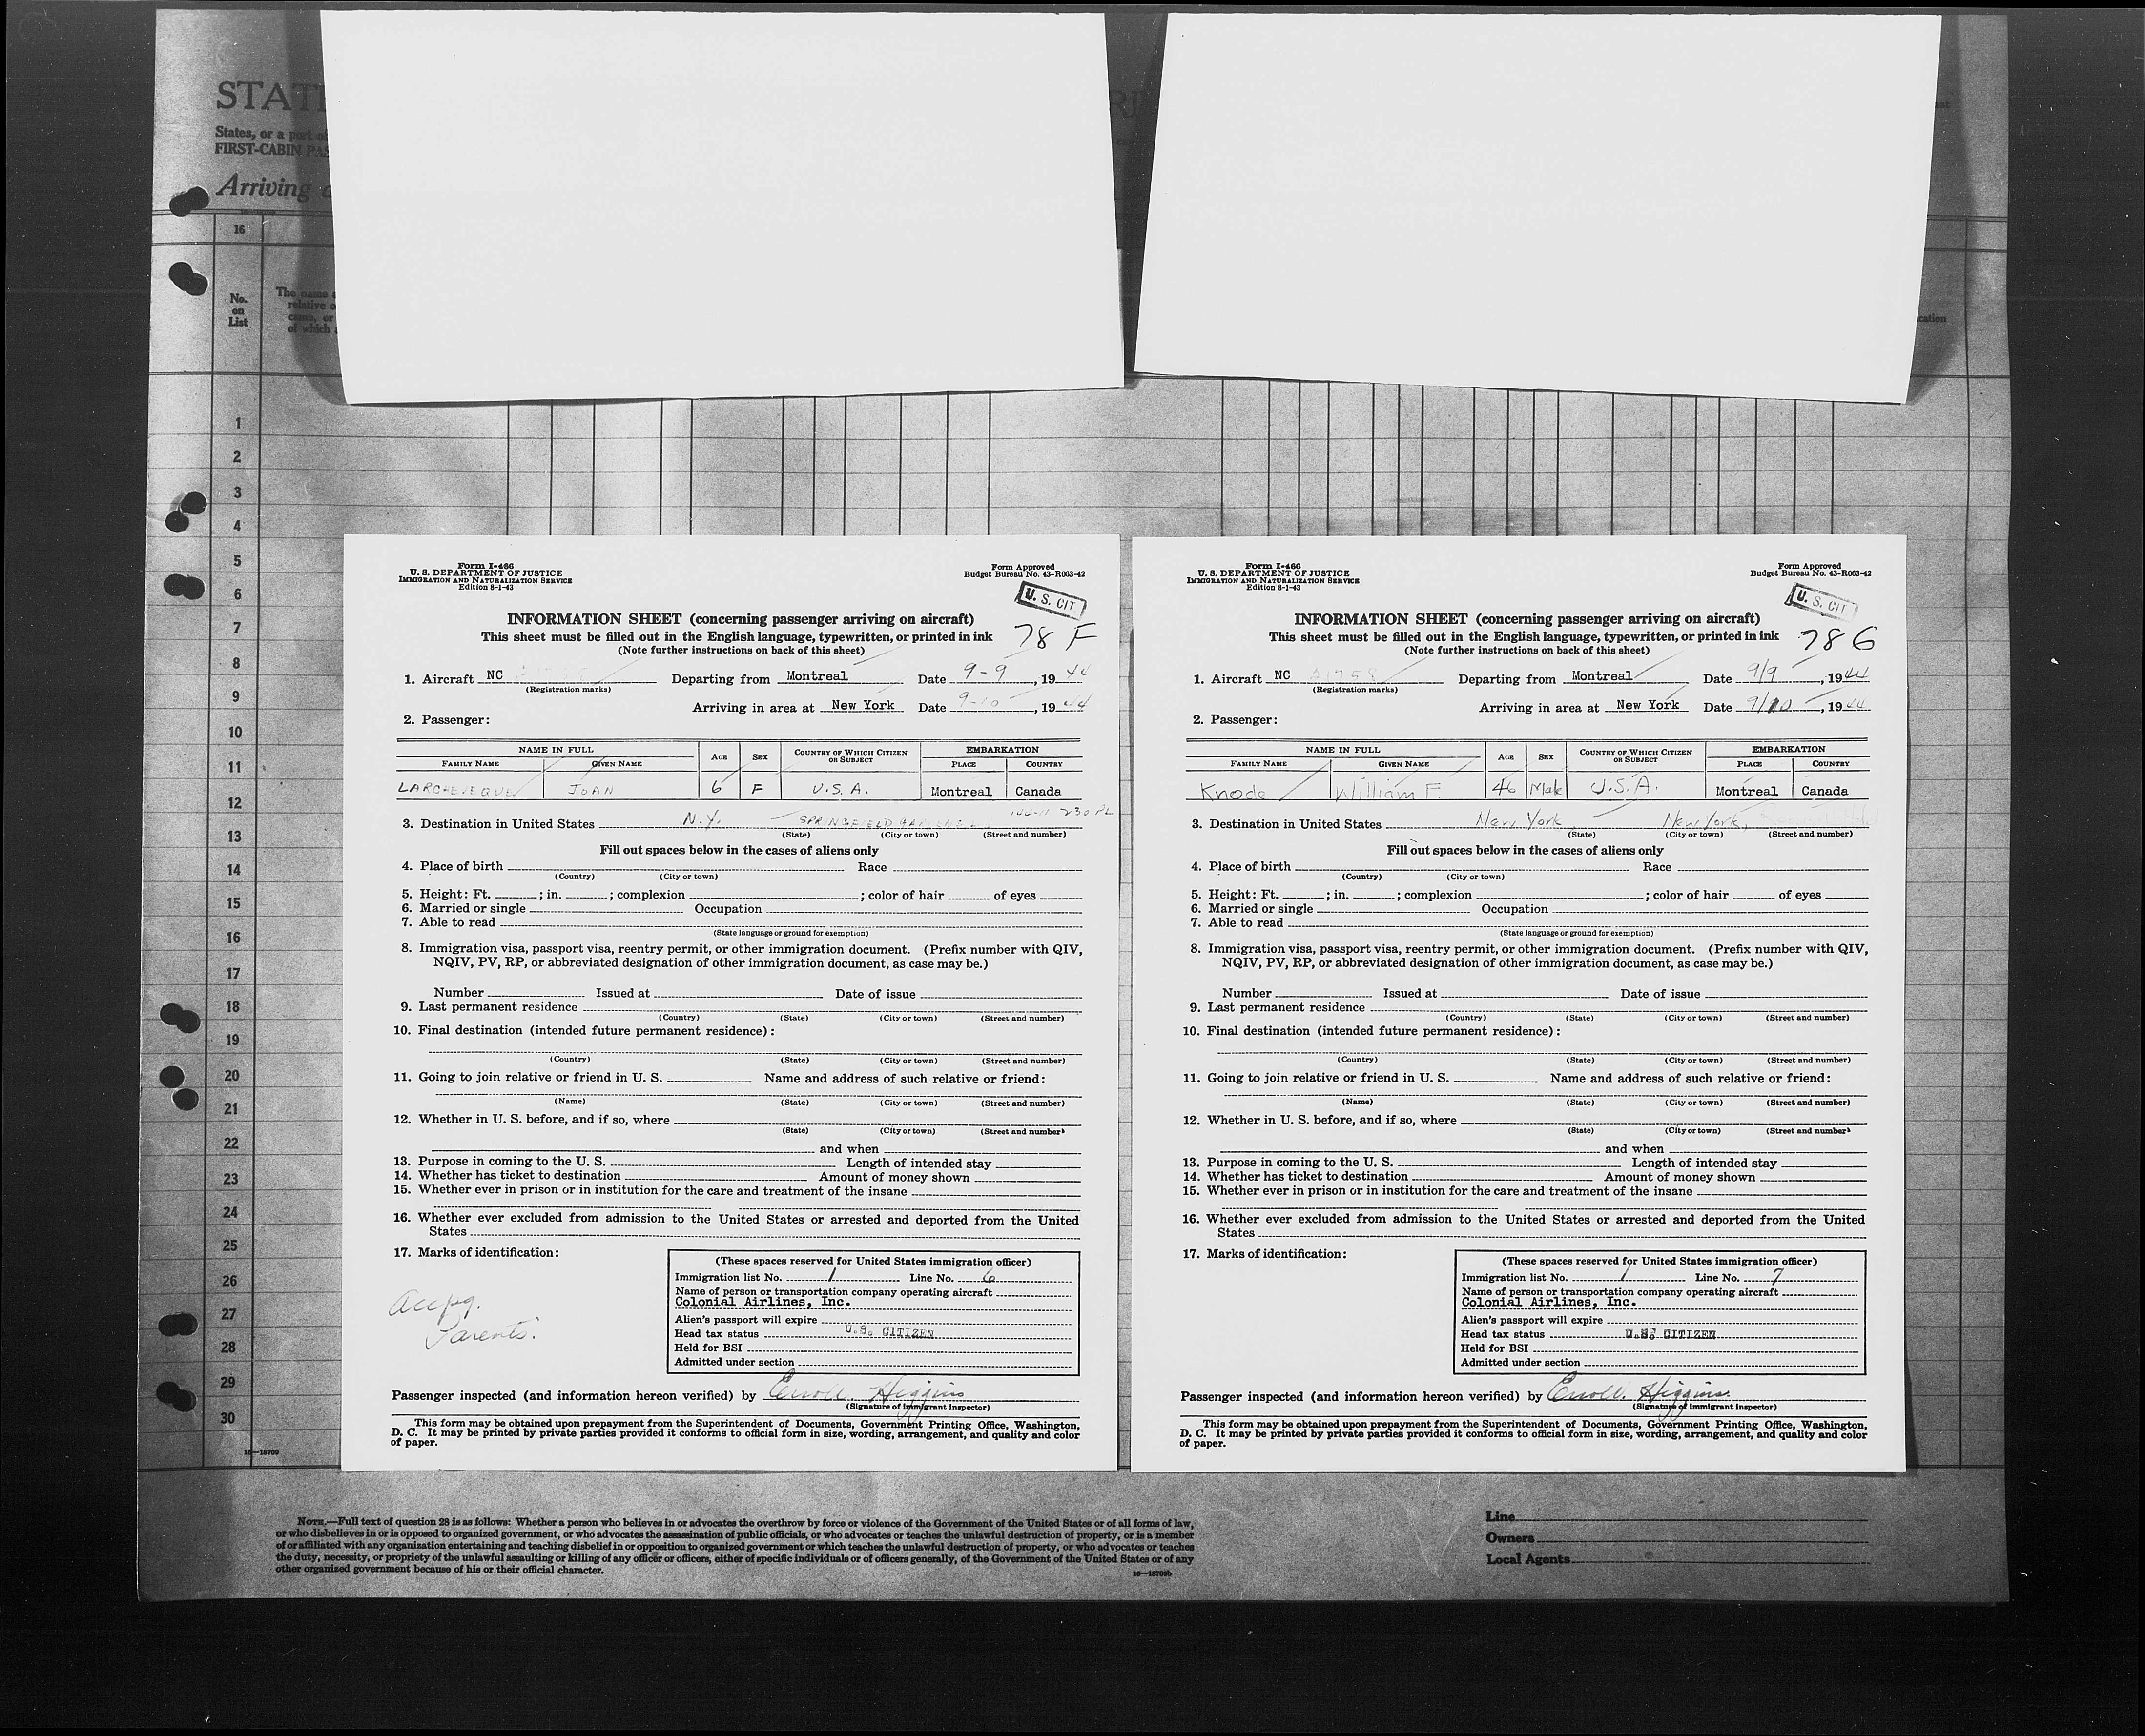 STAT
States, or a port of
FIRST-CABIN PAS
Arriving
16
No.
on
List
The name
relative o
came, or
of which
1
2
3
4
5
6
7
8
9
10
11
12
13
14
15
16
17
18
19
20
21
22
23
24
25
26
27
28
29
30
16—18709
Form I-466
U. S. DEPARTMENT OF JUSTICE
IMMIGRATION AND NATURALIZATION SERVICE
Edition 8-1-43
Form Approved
Budget Bureau No. 43-R063-42
U. S. CIT
INFORMATION SHEET (concerning passenger arriving on aircraft)
This sheet must be filled out in the English language, typewritten, or printed in ink
78 F
(Note further instructions on back of this sheet)
1. Aircraft NC Departing from Montreal Date 9-9, 1944
(Registration marks)
Arriving in area at New York Date 9-10, 1944
2. Passenger:
NAME IN FULL AGE SEX COUNTRY OF WHICH CITIZEN OR SUBJECT EMBARKATION
FAMILY NAME GIVEN NAME PLACE COUNTRY
LARCHEVEQUE JOAN 6 F U.S.A. Montreal Canada
3. Destination in United States N.Y. SPRINGFIELD GARDENS 230 PL
(State) (City or town) (Street and number)
Fill out spaces below in the cases of aliens only
4. Place of birth Race
(Country) (City or town)
5. Height: Ft. ; in. ; complexion ; color of hair of eyes
6. Married or single Occupation
7. Able to read
(State language or ground for exemption)
8. Immigration visa, passport visa, reentry permit, or other immigration document. (Prefix number with QIV,
NQIV, PV, RP, or abbreviated designation of other immigration document, as case may be.)
Number Issued at Date of issue
9. Last permanent residence
(Country) (State) (City or town) (Street and number)
10. Final destination (intended future permanent residence):
(Country) (State) (City or town) (Street and number)
11. Going to join relative or friend in U. S. Name and address of such relative or friend:
(Name) (State) (City or town) (Street and number)
12. Whether in U. S. before, and if so, where
(State) (City or town) (Street and number)
and when
13. Purpose in coming to the U. S. Length of intended stay
14. Whether has ticket to destination Amount of money shown
15. Whether ever in prison or in institution for the care and treatment of the insane
16. Whether ever excluded from admission to the United States or arrested and deported from the United
States
17. Marks of identification:
accpg.
Parents.
(These spaces reserved for United States immigration officer)
Immigration list No. 1 Line No. 6
Name of person or transportation company operating aircraft
Colonial Airlines, Inc.
Alien's passport will expire
Head tax status U.S. CITIZEN
Held for BSI
Admitted under section
Passenger inspected (and information hereon verified) by Errol Higgins
(Signature of immigrant inspector)
This form may be obtained upon prepayment from the Superintendent of Documents, Government Printing Office, Washington,
D. C. It may be printed by private parties provided it conforms to official form in size, wording, arrangement, and quality and color
of paper.
Form I-466
U. S. DEPARTMENT OF JUSTICE
IMMIGRATION AND NATURALIZATION SERVICE
Edition 8-1-43
Form Approved
Budget Bureau No. 43-R063-42
U. S. CIT
INFORMATION SHEET (concerning passenger arriving on aircraft)
This sheet must be filled out in the English language, typewritten, or printed in ink
78 G
(Note further instructions on back of this sheet)
1. Aircraft NC 21758 Departing from Montreal Date 9/9, 1944
(Registration marks)
Arriving in area at New York Date 9/10, 1944
2. Passenger:
NAME IN FULL AGE SEX COUNTRY OF WHICH CITIZEN OR SUBJECT EMBARKATION
FAMILY NAME GIVEN NAME PLACE COUNTRY
Knode William F. 46 Male U.S.A. Montreal Canada
3. Destination in United States New York New York,
(State) (City or town) (Street and number)
Fill out spaces below in the cases of aliens only
4. Place of birth Race
(Country) (City or town)
5. Height: Ft. ; in. ; complexion ; color of hair of eyes
6. Married or single Occupation
7. Able to read
(State language or ground for exemption)
8. Immigration visa, passport visa, reentry permit, or other immigration document. (Prefix number with QIV,
NQIV, PV, RP, or abbreviated designation of other immigration document, as case may be.)
Number Issued at Date of issue
9. Last permanent residence
(Country) (State) (City or town) (Street and number)
10. Final destination (intended future permanent residence):
(Country) (State) (City or town) (Street and number)
11. Going to join relative or friend in U. S. Name and address of such relative or friend:
(Name) (State) (City or town) (Street and number)
12. Whether in U. S. before, and if so, where
(State) (City or town) (Street and number)
and when
13. Purpose in coming to the U. S. Length of intended stay
14. Whether has ticket to destination Amount of money shown
15. Whether ever in prison or in institution for the care and treatment of the insane
16. Whether ever excluded from admission to the United States or arrested and deported from the United
States
17. Marks of identification:
(These spaces reserved for United States immigration officer)
Immigration list No. 1 Line No. 7
Name of person or transportation company operating aircraft
Colonial Airlines, Inc.
Alien's passport will expire
Head tax status U.S. CITIZEN
Held for BSI
Admitted under section
Passenger inspected (and information hereon verified) by Errol Higgins
(Signature of immigrant inspector)
This form may be obtained upon prepayment from the Superintendent of Documents, Government Printing Office, Washington,
D. C. It may be printed by private parties provided it conforms to official form in size, wording, arrangement, and quality and color
of paper.
NOTE.—Full text of question 28 is as follows: Whether a person who believes in or advocates the overthrow by force or violence of the Government of the United States or of all forms of law,
or who disbelieves in or is opposed to organized government, or who advocates the assassination of public officials, or who advocates or teaches the unlawful destruction of property, or is a member
of or affiliated with any organization entertaining and teaching disbelief in or opposition to organized government or which teaches the unlawful destruction of property, or who advocates or teaches
the duty, necessity, or propriety of the unlawful assaulting or killing of any officer or officers, either of specific individuals or of officers generally, of the Government of the United States or of any
other organized government because of his or their official character.
16—18709b
Line
Owners
Local Agents